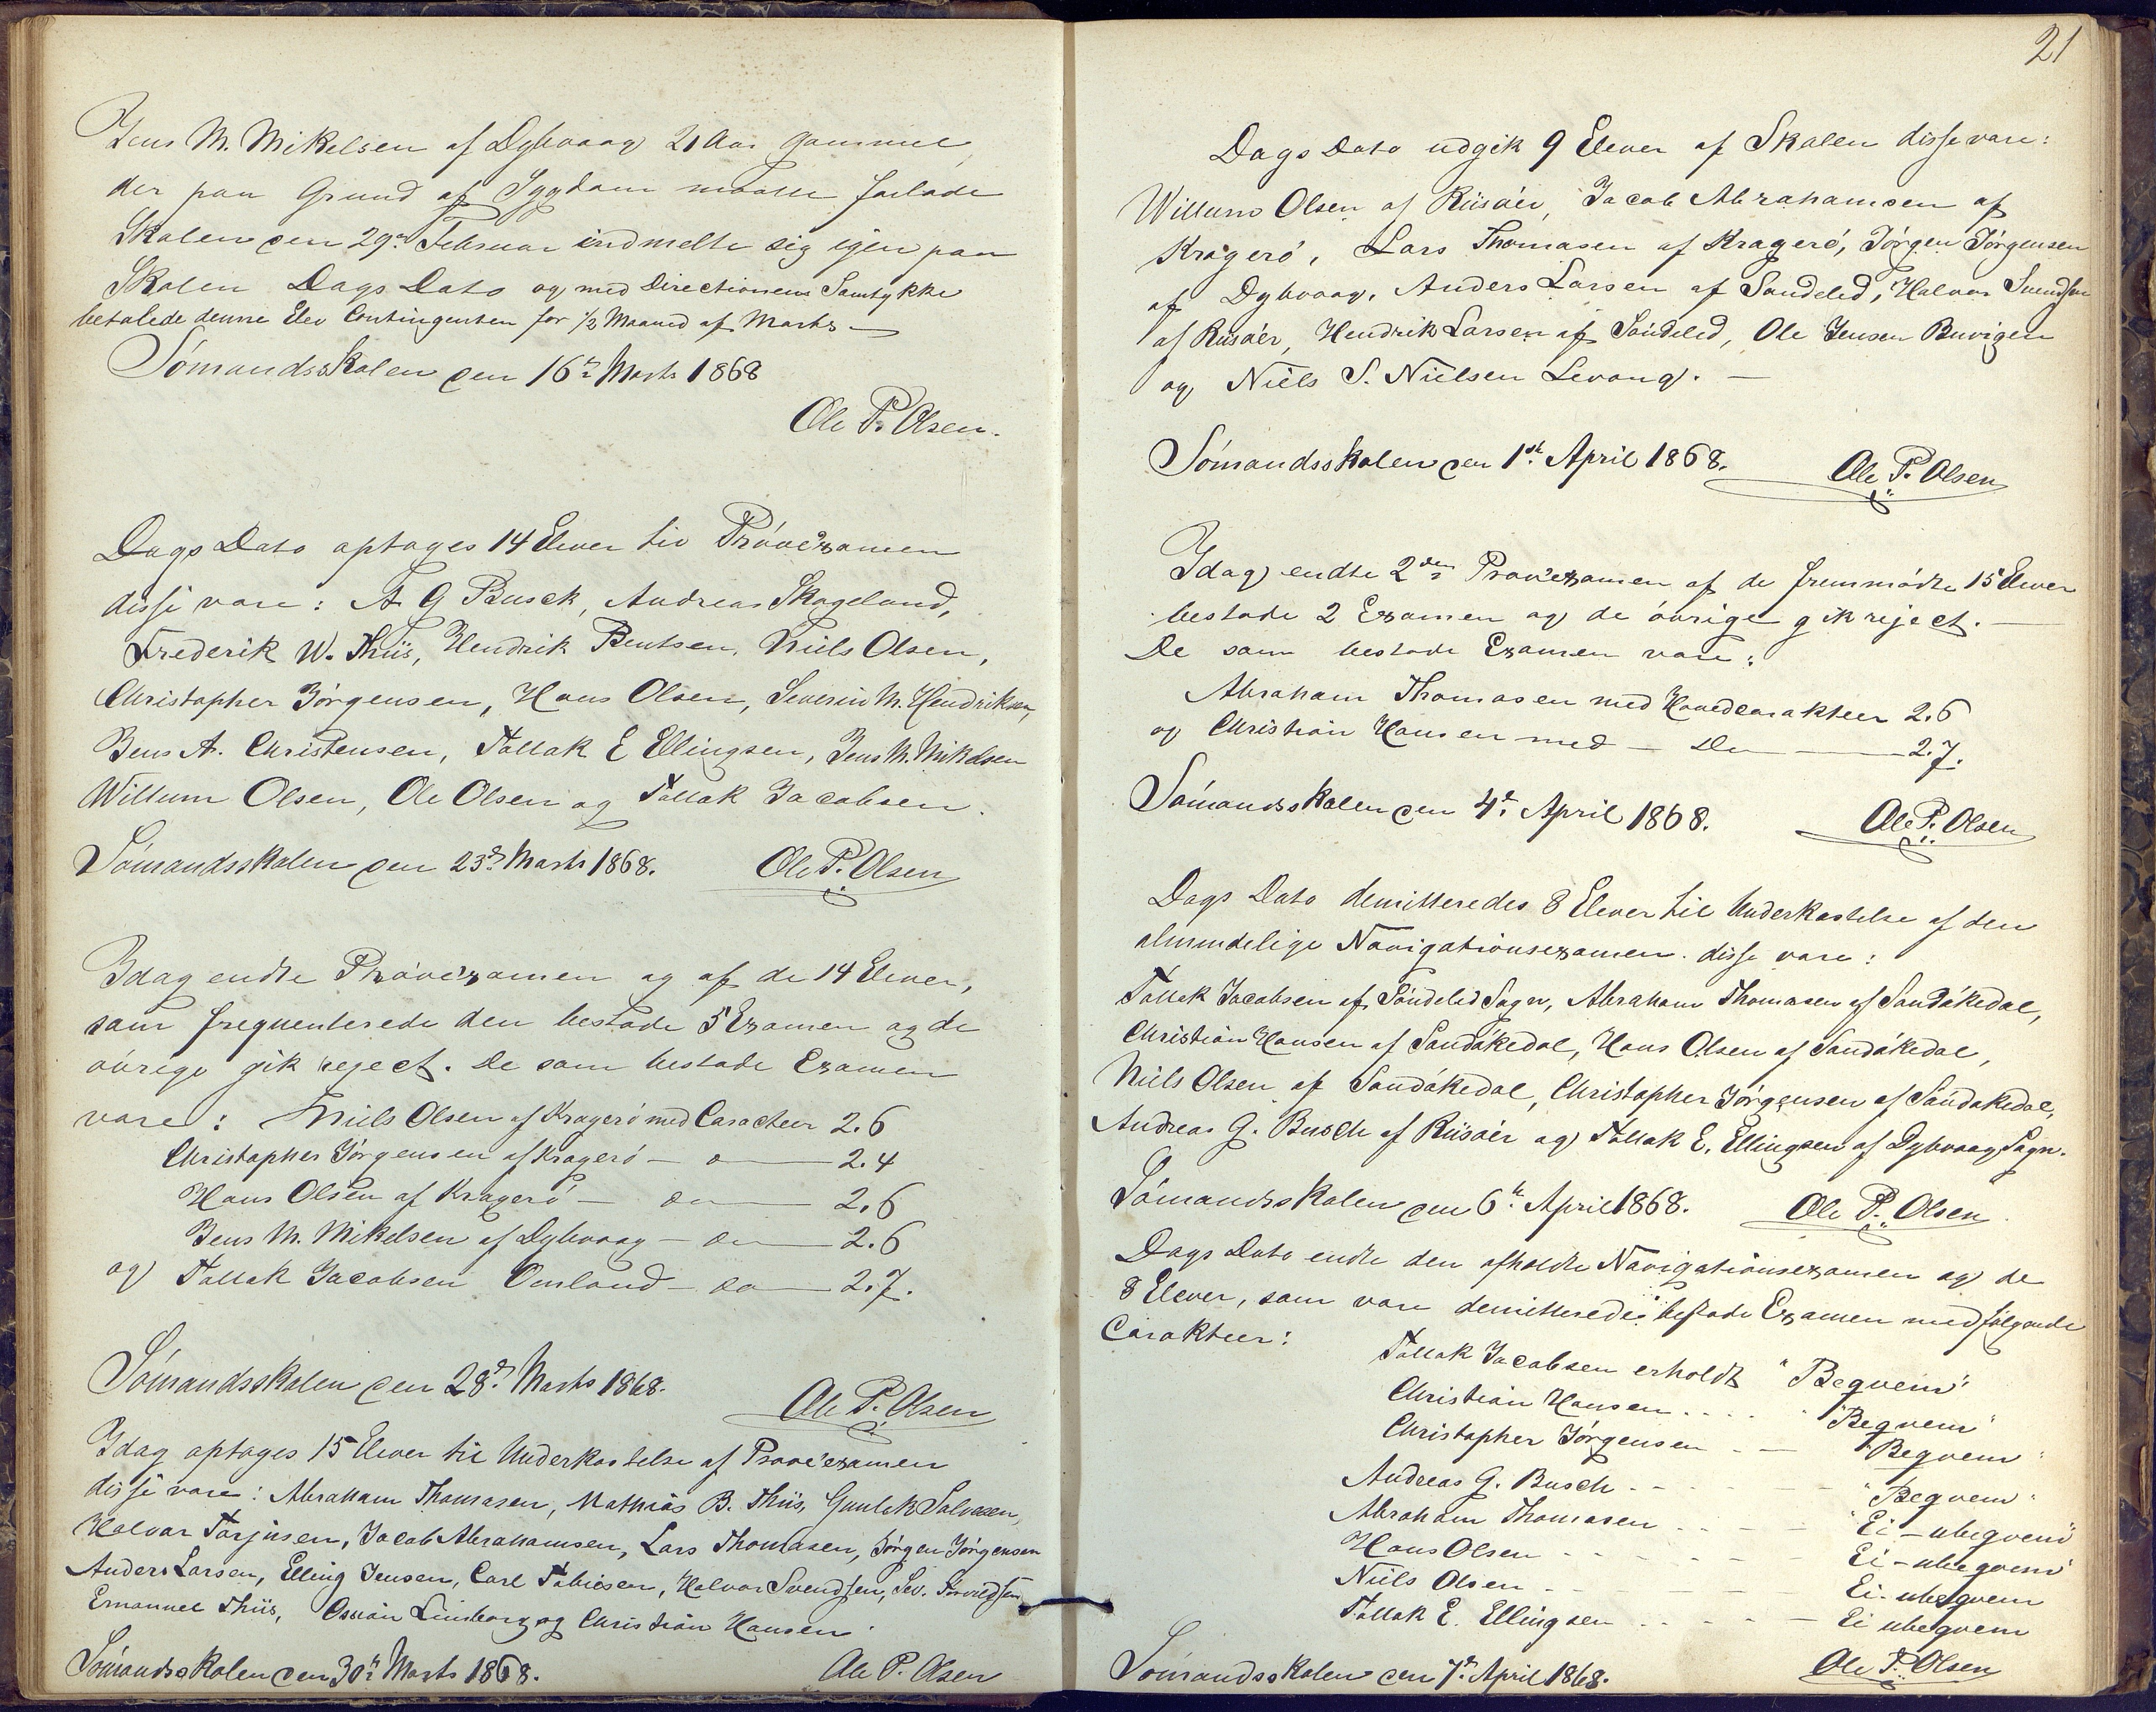 Jens M. Mikelsen af Dybvaag 21 Aar gammel,
der paa Grund af Sygdom maatte forlade
Skolen den 29de Februar indmelte sig igjen paa
Skolen Dags Dato og med Directionens Samtykke
betalede denne Elev Contingenten for 1/2 Maaned af Marts —
Sömandsskolen den 16de Marts 1868
Ole P. Olsen.
Dags Dato optoges 14 Elever til Pröveexamen
disse vare: A. G Busch, Andreas Skageland,
Frederik W. Thiis, Hendrik Bentsen, Niels Olsen,
Christopher Jörgensen, Hans Olsen, Severin M. Hendriksen,
Jens A. Christensen, Tallak E Ellingsen, Jens M. Mikelsen
Willum Olsen, Ole Olsen og Tallak Jacobsen.
Sömandsskolen den 23de Marts 1868. Ole P. Olsen
Idag endte Pröveexamen og af de 14 Elever,
som frequenterede den bestode 5 Examen og de
övrige gik reject. De som bestode Examen
vare: Niels Olsen af Kragerö med Caracteer 2.6
Christopher Jörgensen af Kragerö — o — 2.4
Hans Olsen af Kragerö — do — 2.6
Jens M. Mikelsen af Dybvaag — do — 2.6
og Tallak Jacobsen Omland — do — 2.7.
Sömandsskolen den 28de Marts 1868.
Ole P. Olsen
Idag optoges 15 Elever til Underkastelse af Proveexamen
disse vare: Abraham Thomasen, Mathias B. Thiis, Gunlek Salvesen,
Halvor Torjusen, Jacob Abrahamsen, Lars Thomasen, Jörgen Jörgensen
Anders Larsen, Elling Jensen, Carl Tobiesen, Halvor Svendsen, Sev.
Emanuel Thiis, Linsborg og Christian Hansen.
Sömandsskolen den 30te Marts 1868. Ole P. Olsen
21
Dags Dato udgik 9 Elever af Skolen disse vare:
Willum Olsen af Riisöer, Jacob Abrahamsen af
Kragerö, Lars Thomasen af Kragerö, Jörgen Jörgensen
af Dybvaag, Anders Larsen af Sondeled, Halvor Svendsen
af Riisöer, Hendrik Larsen af Söndeled, Ole Jensen Buvigen
og Niels S. Nielsen Levang. —
Sömandsskolen den 1ste April 1868. Ole P. Olsen
Idag endte 2den Proveexamen af de fremmödte 15 Elever
bestode 2 Examen og de övrige gik reject. —
De som bestode Examen vare:
Abraham Thomasen med Hovedcarakteer 2.6
og Christian Hansen med — Do — 2.7.
Sömandsskolen den 4de April 1868. Ole P. Olsen
Dags Dato demitteredes 8 Elever til Underkastelse af den
almindelige Navigationsexamen. disse vare:
Tallak Jacobsen af Söndeled Sogn, Abraham Thomasen af Sandökedal,
Christian Hansen af Sandökedal, Hans Olsen af Sandökedal,
Niels Olsen af Sandökedal, Christopher Jörgensen af Sandökedal,
Andreas G. Busch af Riisöer og Tallak E. Ellingsen af Dybvaag Sogn.
Sömandsskolen den 6te April 1868. Ole P. Olsen
Dags Dato endte den afholdte Navigationsexamen og de
8 Elever, som vare demitterede bestode Examen med fölgende
Carakteer:
Tallak Jacobsen erholdt "Beqvem"
Christian Hansen . . . . "Beqvem"
Christopher Jörgensen — — "Beqvem"
Andreas G. Busch - - - - "Beqvem"
Abraham Thomasen - - - - "Ei-ubeqvem"
Hans Olsen - - - - Ei-ubeqvem
Niels Olsen - - - - Ei-ubeqvem
Tallak E. Ellingsen - - - - Ei ubeqvem
Sömandsskolen den 7de April 1868. Ole P. Olsen